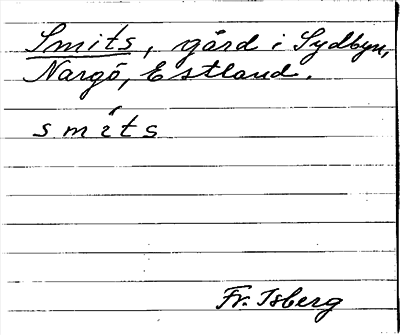 Smits, gård i Sydbyn,
Nargö, Estland.
smi´ts
Fr. Isberg